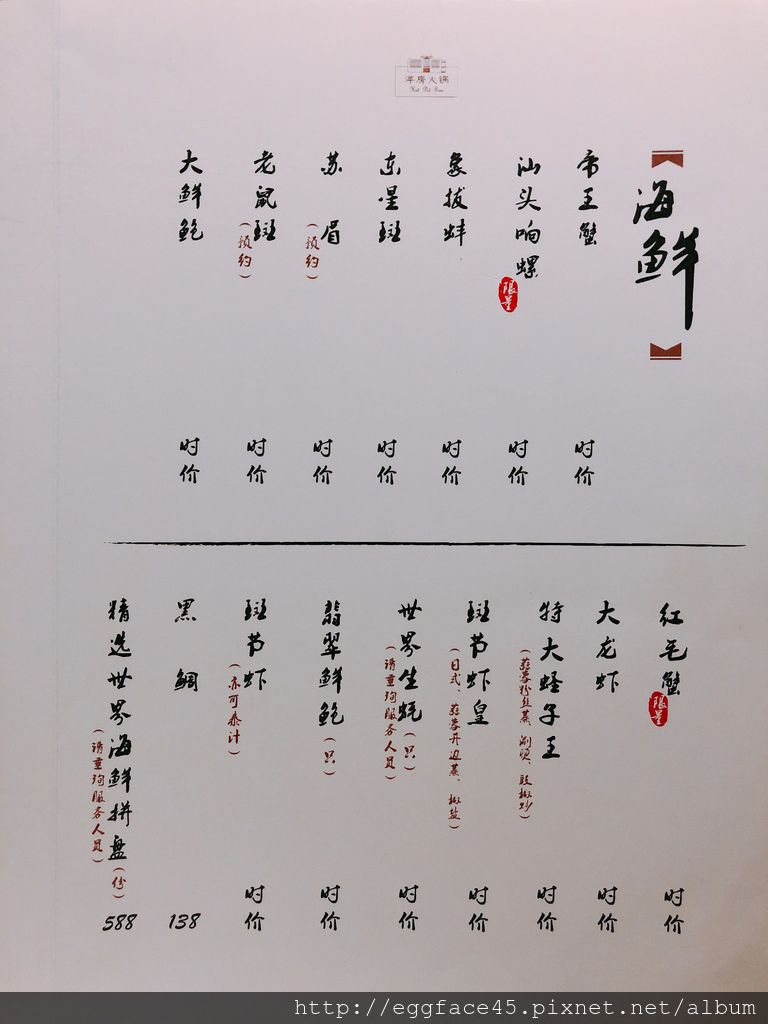 洋房火锅
Hot Pot
海鲜
帝王蟹 时价
汕头响螺 限量 时价
象拔蚌 时价
东星斑 时价
苏眉 (预约) 时价
老鼠斑 (预约) 时价
大鲜鲍 时价
红毛蟹 限量 时价
大龙虾 时价
特大蛏子王 时价
(蒜蓉粉丝蒸、涮烫、豉椒炒)
斑节虾皇 时价
(日式、蒜蓉开边蒸、椒盐)
世界生蚝(只) 时价
(请垂询服务人员)
翡翠鲜鲍(只) 时价
斑节虾 时价
(亦可泰汁)
黑鲷 138
精选世界海鲜拼盘(份) 588
(请垂询服务人员)
http://eggface45.pixnet.net/album